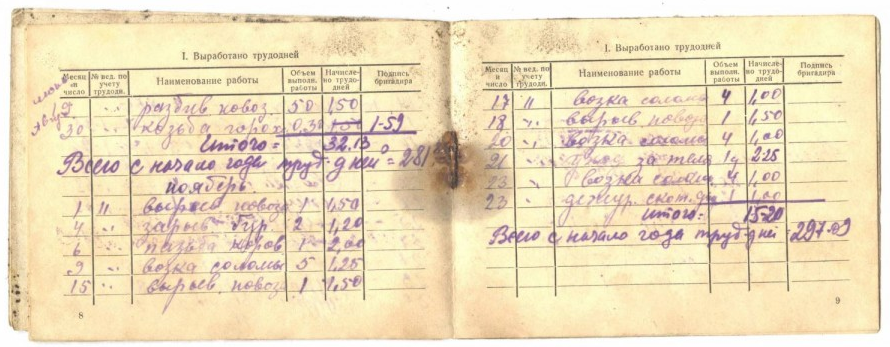 I. Выработано трудодней
Месяц и число № вед. по учету трудодн. Наименование работы Объем выполн. работы Начисле-но трудо-дней Подпись бригадира
19 " разбив навоз. 50 1,50
30 " 0,30 1-59
Итого= 32.13
Всего с начало года труд-дней =
ноябрь.
1 " вырыев навоза 1 1,50
4 " зарыв бур. 2 1,20
6 " пазьба коров 1 2,00
9 " возка соломы 5 1,25
15 " вырыев. навоза 1 1,50
8
I. Выработано трудодней
Месяц и число № вед. по учету трудодн. Наименование работы Объем выполн. работы Начисле-но трудо-дней Подпись бригадира
17 " возка соломы 4 1,00
18 " вырыев навоза 1 1,50
20 " возка соломы 4 1,00
21 " уход за теля 225
23 " возка соломы 4 1,00
23 " дежур. скот. дв 1 1,00
итого= 15-20
Всего с начало года труд-дней =
9